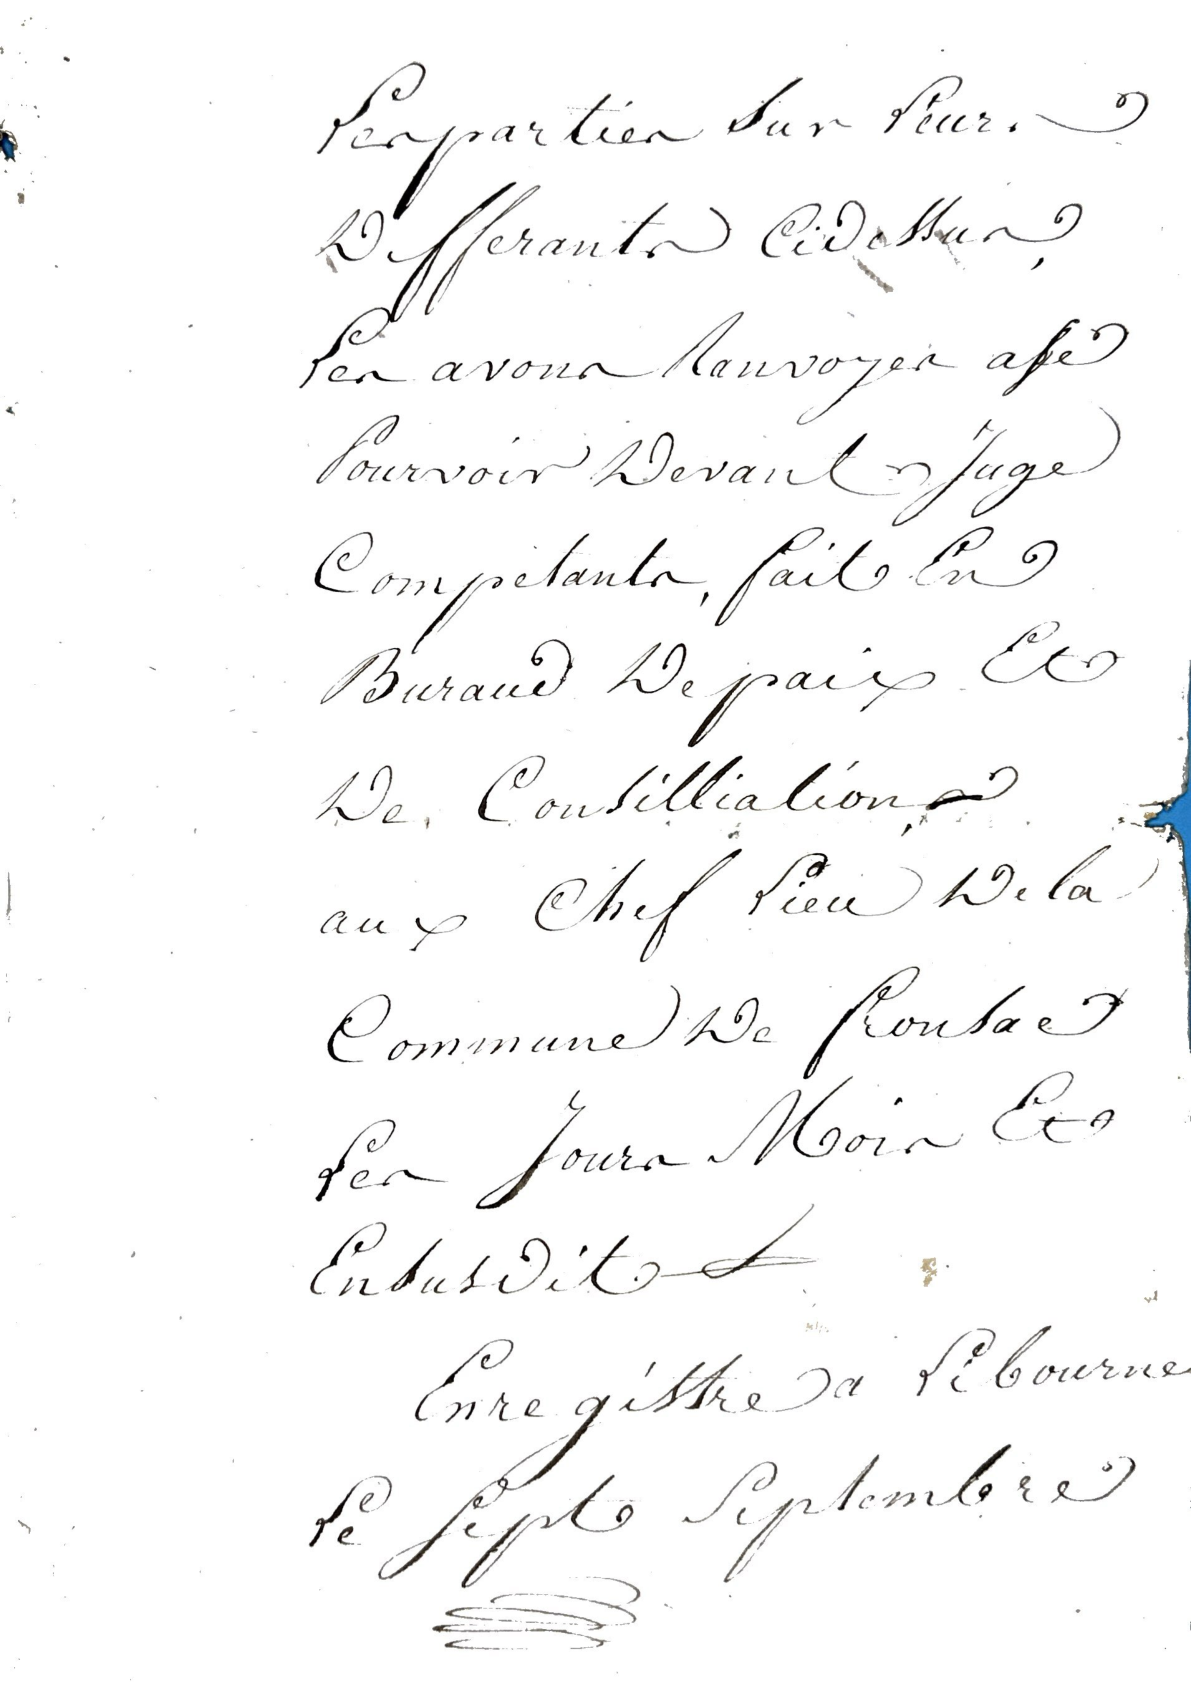 Les parties sur Leurs
Differants Cidessus,
Les avons Ranvoyes asse
Pourvoir Devant Juge
Competants, fait En
Buraud De paix Et
De Consilliation,
aux Chef Lieu De la
Commune De fronsac
Les Jours Mois Et
Ensusdit
Enregistre a Libourne
Le sept Septembre